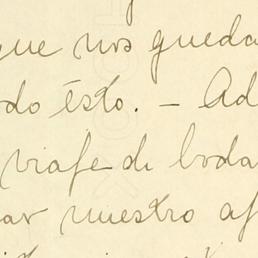 que nos queda
odo ésto. - Ad
viaje de boda
ar nuestro af